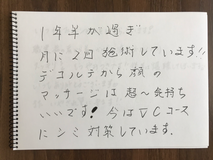 1年半が過ぎ
月に2回施術しています!!
デコルテから顔の
マッサージは超〜気持ち
いいです!今はVCコース
にシミ対策しています.